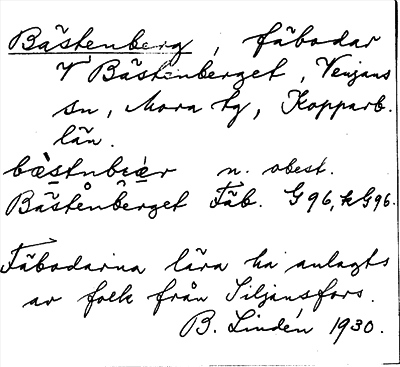 Bästenberg, fäbodar
V Bästenberget, Venjans
sn, Mora tg, Kopparb.
län.
bæ̀stnbær n. obest.
Bästenberget Fäb. G96, kG96.
Fäbodarna lära ha anlagts
av folk från Siljansfors.
B. Lindén 1930.